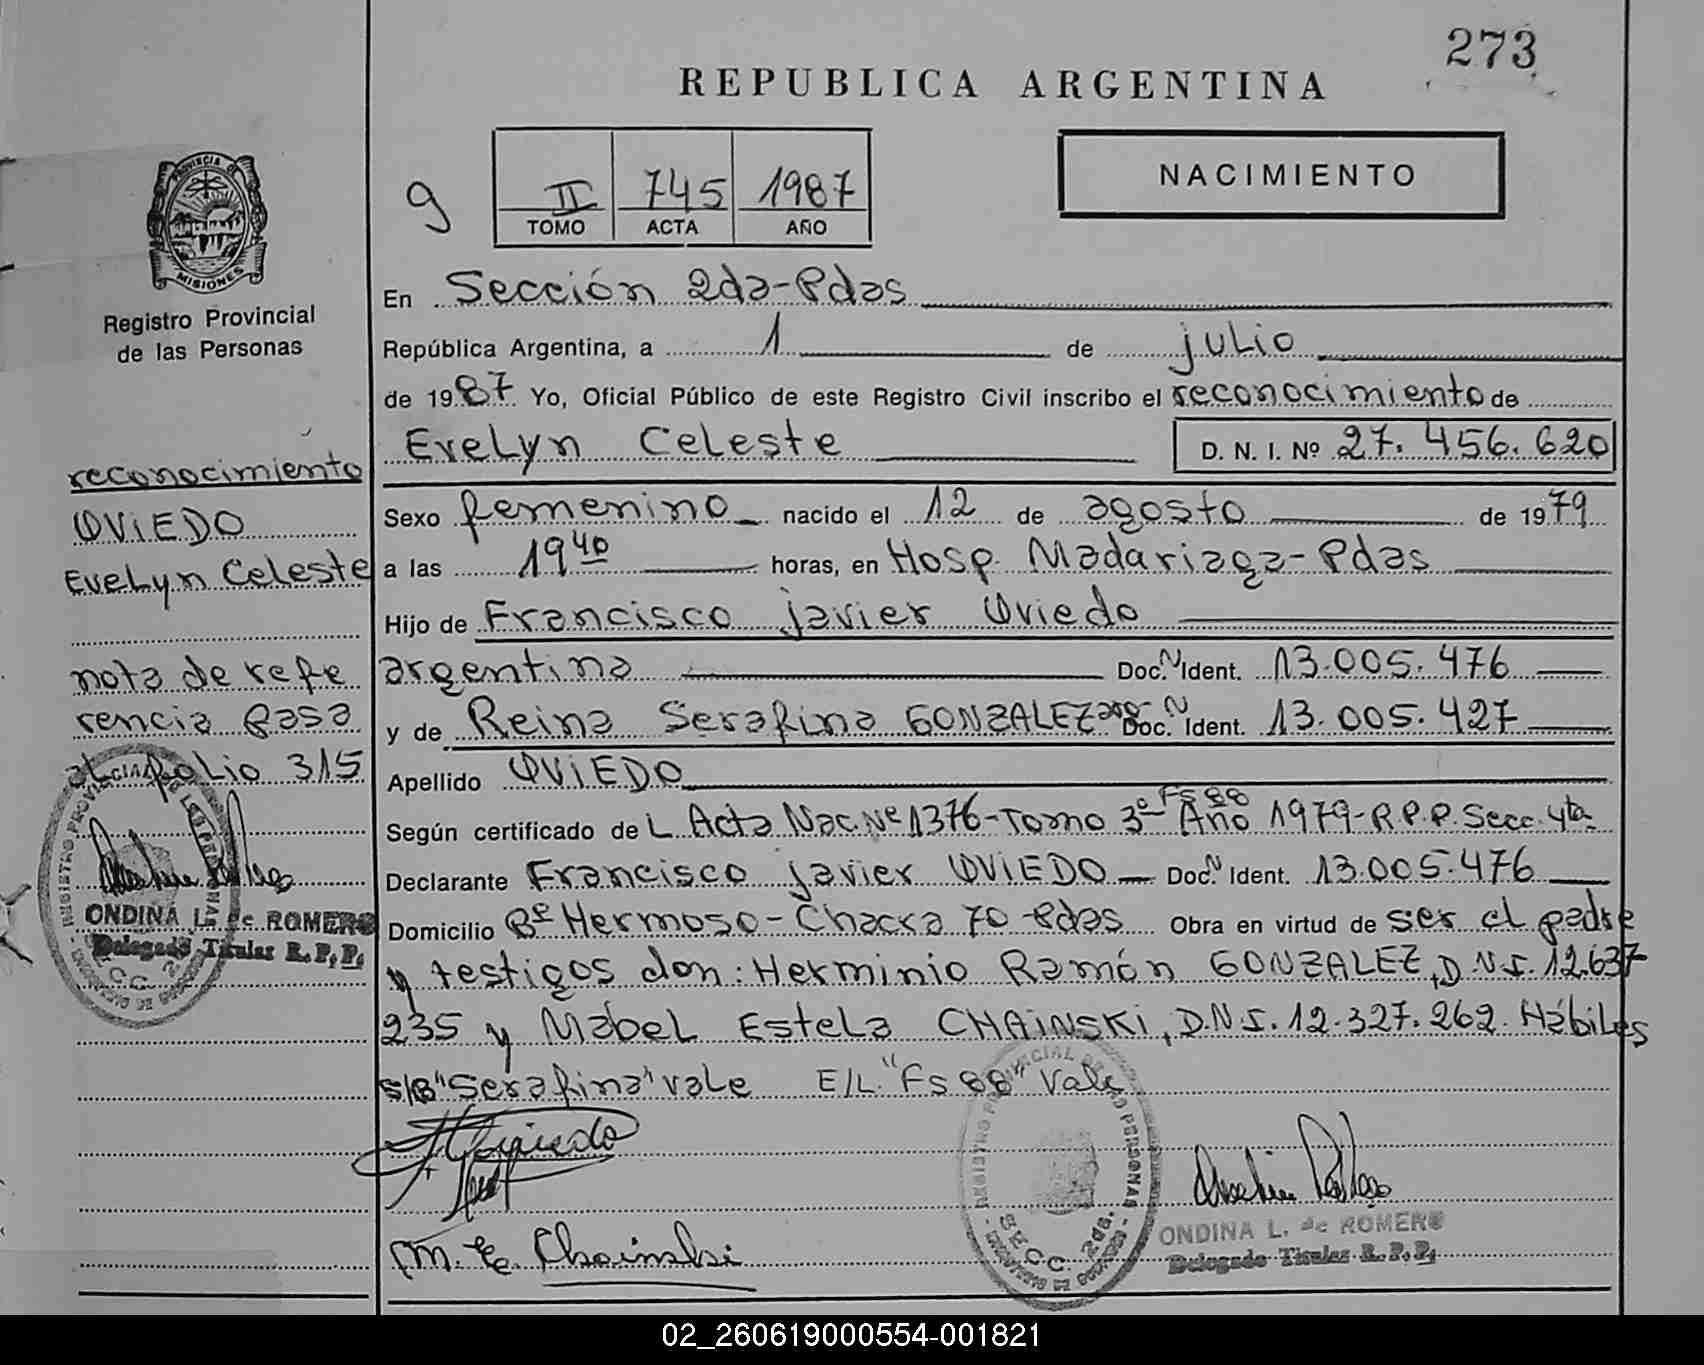 273
REPUBLICA ARGENTINA
PROVINCIA DE
MISIONES
Registro Provincial
de las Personas
9
II 745 1987
TOMO ACTA AÑO
NACIMIENTO
En Sección 2da-Pdas
República Argentina, a 1 de julio
de 1987 Yo, Oficial Público de este Registro Civil inscribo el reconocimiento de
Evelyn Celeste D. N. I. Nº 27.456.620
Sexo femenino nacido el 12 de agosto de 1979
a las 19 40 horas, en Hosp. Madariaga-Pdas
Hijo de Francisco javier Oviedo
argentina Doc. N Ident. 13.005.476
y de Reina Serafina GONZALEZ arg- Doc. N Ident. 13.005.427
Apellido OVIEDO
Según certificado de L Acta Nac. Nº 1376-Tomo 3º Fs 88 Año 1979-R.P.P. Secc. 4ta
Declarante Francisco javier OVIEDO Doc. N Ident. 13.005.476
Domicilio Bº Hermoso-Chacra 70-Pdas Obra en virtud de ser el padre
y testigos don: Herminio Ramón GONZALEZ, D.N.I. 12.637
235 y Mabel Estela CHAINSKI, D.N.I. 12.327.262. Hábiles
S/B "Serafina" vale E/L "Fs 88" vale
M. E. Chainski
REGISTRO PROVINCIAL DE LAS PERSONAS
SECC. 2da.
ONDINA L. de ROMERO
Delegado Titular R. P. P.
reconocimiento
OVIEDO
Evelyn Celeste
nota de refe
rencia pasa
al folio 315
ONDINA L. de ROMERO
Delegado Titular R. P. P.
02_260619000554-001821